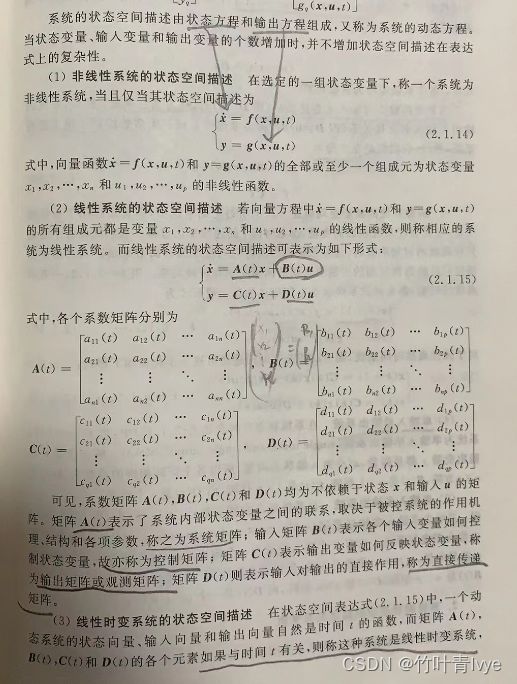 g_q(x,u,t)
系统的状态空间描述由状态方程和输出方程组成,又称为系统的动态方程。
当状态变量、输入变量和输出变量的个数增加时,并不增加状态空间描述在表达
式上的复杂性。
(1) 非线性系统的状态空间描述 在选定的一组状态变量下,称一个系统为
非线性系统,当且仅当其状态空间描述为
ẋ = f(x,u,t)
y = g(x,u,t)
(2.1.14)
式中,向量函数ẋ=f(x,u,t)和 y=g(x,u,t)的全部或至少一个组成元为状态变量
x₁,x₂,⋯,xₙ 和 u₁,u₂,⋯,uₚ 的非线性函数。
(2) 线性系统的状态空间描述 若向量方程中ẋ=f(x,u,t)和 y=g(x,u,t)
的所有组成元都是变量 x₁,x₂,⋯,xₙ 和 u₁,u₂,⋯,uₚ 的线性函数,则称相应的系
统为线性系统。而线性系统的状态空间描述可表示为如下形式:
ẋ = A(t)x + B(t)u
y = C(t)x + D(t)u
(2.1.15)
式中,各个系数矩阵分别为
A(t) =
a₁₁(t) a₁₂(t) ⋯ a₁ₙ(t)
a₂₁(t) a₂₂(t) ⋯ a₂ₙ(t)
⋮ ⋮ ⋱ ⋮
aₙ₁(t) aₙ₂(t) ⋯ aₙₙ(t)
x₁
x₂
B(t) =
b₁₁(t) b₁₂(t) ⋯ b₁ₚ(t)
b₂₁(t) b₂₂(t) ⋯ b₂ₚ(t)
⋮ ⋮ ⋱ ⋮
bₙ₁(t) bₙ₂(t) ⋯ bₙₚ(t)
C(t) =
c₁₁(t) c₁₂(t) ⋯ c₁ₙ(t)
c₂₁(t) c₂₂(t) ⋯ c₂ₙ(t)
⋮ ⋮ ⋱ ⋮
c_q1(t) c_q2(t) ⋯ c_qn(t)
,
D(t) =
d₁₁(t) d₁₂(t) ⋯ d₁ₚ(t)
d₂₁(t) d₂₂(t) ⋯ d₂ₚ(t)
⋮ ⋮ ⋱ ⋮
d_q1(t) d_q2(t) ⋯ d_qp(t)
可见,系数矩阵 A(t),B(t),C(t)和 D(t)均为不依赖于状态 x 和输入 u 的矩
阵。矩阵 A(t)表示了系统内部状态变量之间的联系,取决于被控系统的作用机
理、结构和各项参数,称之为系统矩阵;输入矩阵 B(t)表示各个输入变量如何控
制状态变量,故亦称为控制矩阵;矩阵 C(t)表示输出变量如何反映状态变量,称
为输出矩阵或观测矩阵;矩阵 D(t)则表示输入对输出的直接作用,称为直接传递
矩阵。
(3) 线性时变系统的状态空间描述 在状态空间表达式(2.1.15)中,一个动
态系统的状态向量、输入向量和输出向量自然是时间 t 的函数,而矩阵 A(t),
B(t),C(t)和 D(t)的各个元素如果与时间 t 有关,则称这种系统是线性时变系统,
CSDN @竹叶青lvye